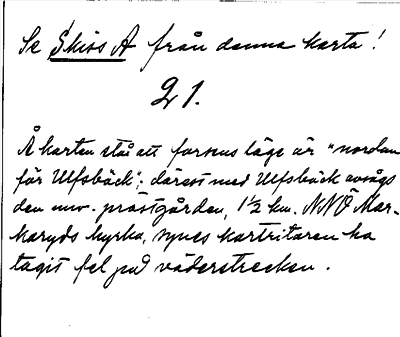 Se Skiss A från denna karta!
21.
Å karten stå att forsens läge är "nordan
för Ulfsbäck"; därest med Ulfsbäck avsågs
den nuv. prostgården, 1½ km. NNÖ Mar-
karyds kyrka, synes kartritaren ha
tagit fel på väderstrecken.